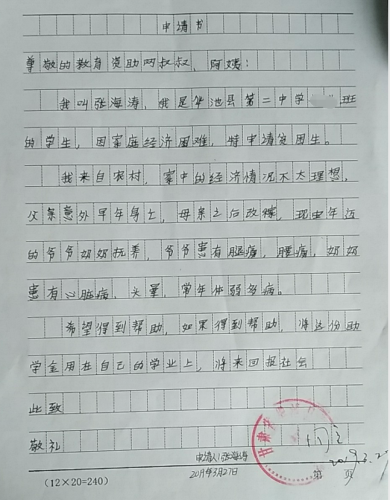 申请书
尊敬的教育资助网叔叔，阿姨：
我叫张海涛，我是华池县第二中学 班
的学生，因家庭经济困难，特申请贫困生。
我来自农村，家中的经济情况不太理想，
父亲意外早年身亡，母亲之后改嫁，现由年迈
的爷爷奶奶抚养，爷爷患有脑病，腰痛，奶奶
患有心脑病，头晕，常年体弱多病。
希望得到帮助，如果得到帮助，将这份助
学金用在自己的学业上，将来回报社会
此致
敬礼
申请人：张海涛
2019年3月27日
(12×20=240)
第 页